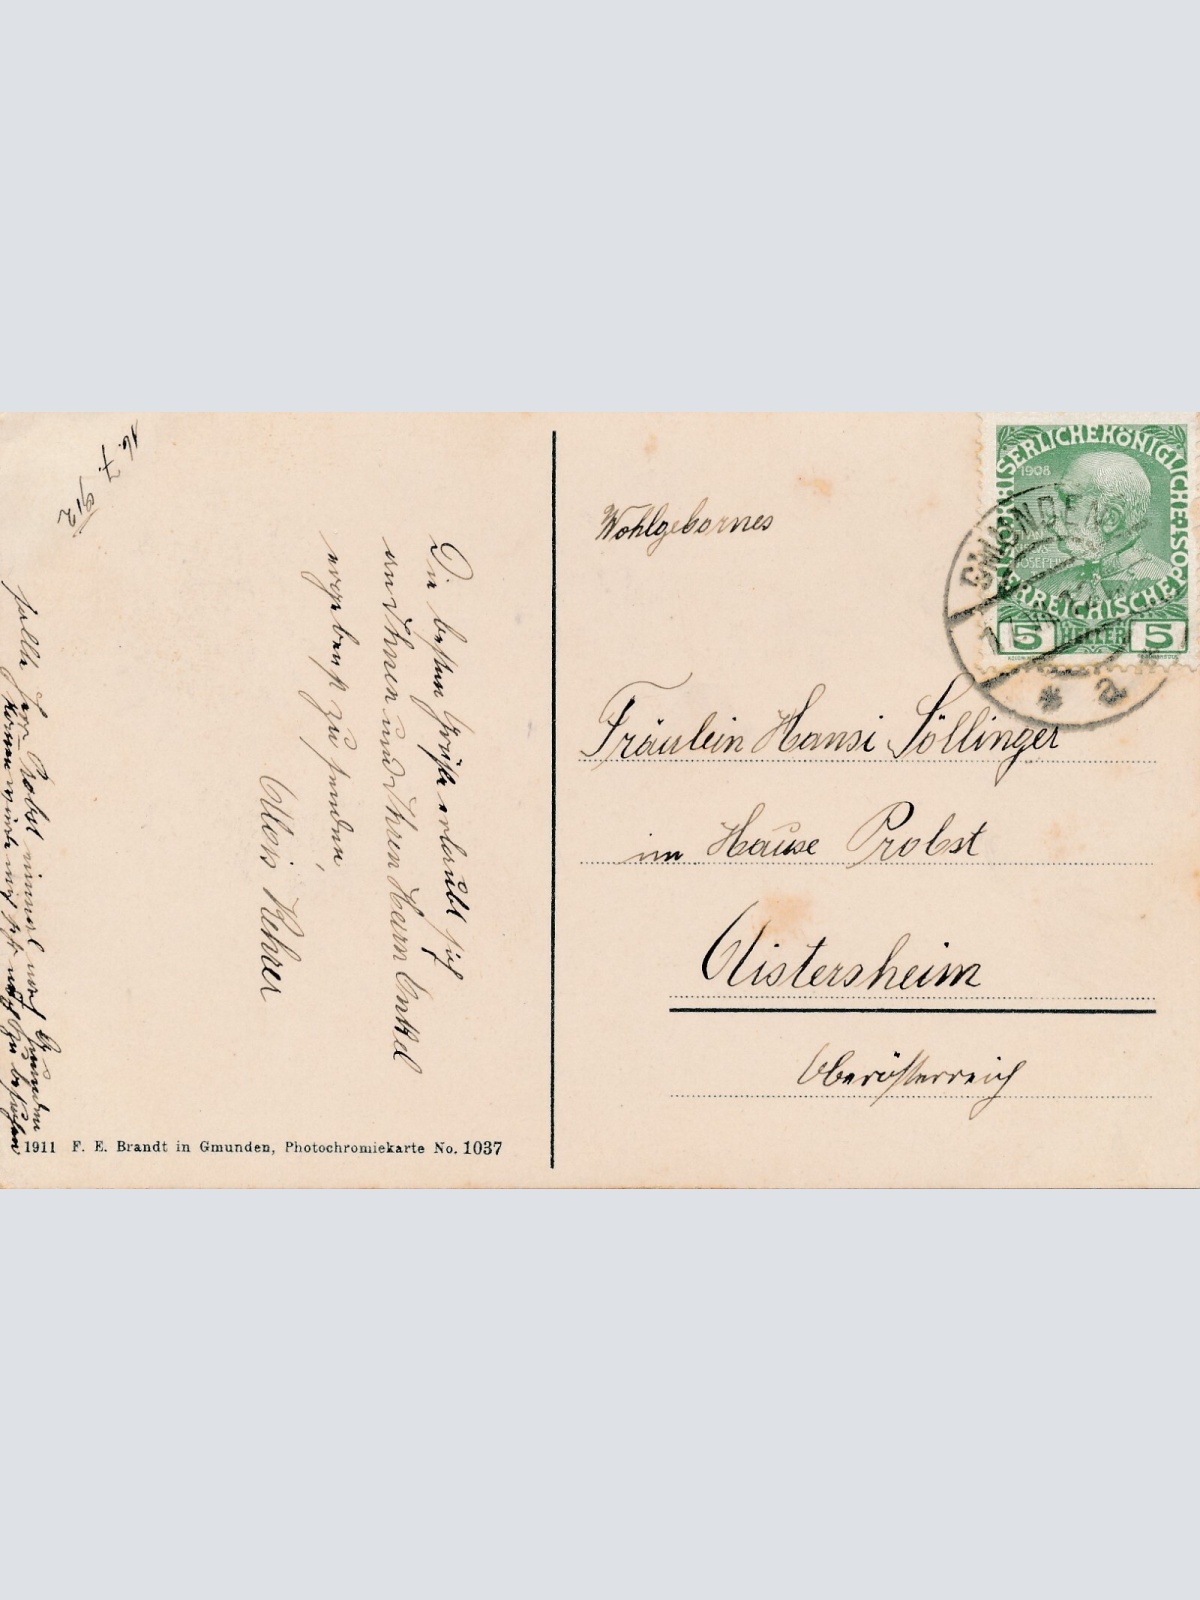 16. 7. 912
Die besten Grüße erlaubt sich
an Ihnen und Ihren Herrn Onkel
ergebenst zu senden,
Alois Kuhrer
Falls Herr Probst einmal nach Gmunden
kommen würde
zu besuchen
1911 F. E. Brandt in Gmunden, Photochromiekarte No. 1037
KAISERLICHE KÖNIGLICHE ÖSTERREICHISCHE POST
1908
5 HELLER 5
GMUNDEN
* a
Wohlgebornes
Fräulein Hansi Söllinger
im Hause Probst
Aistersheim
Oberösterreich